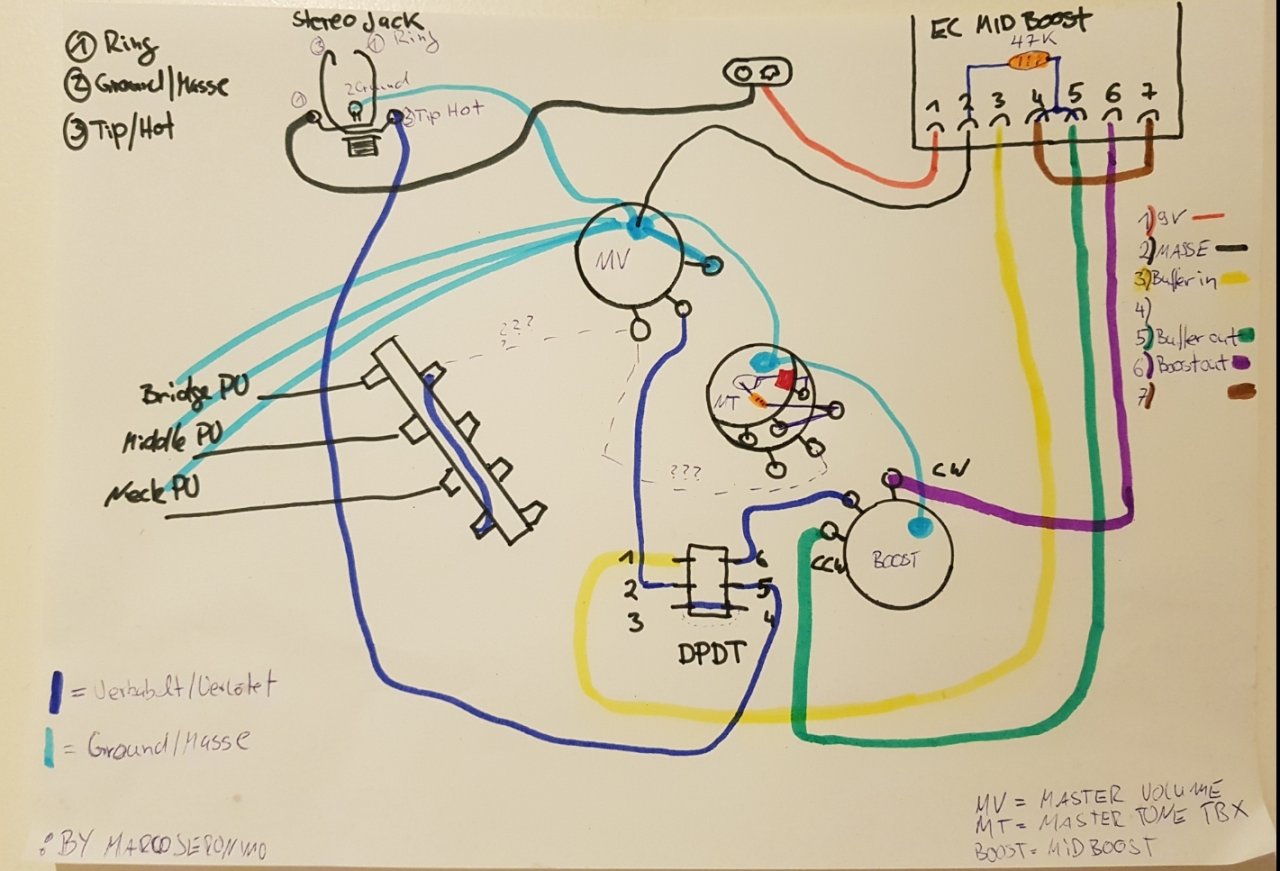 Stereo Jack
① Ring
② Ground/Masse
③ Tip/Hot
③ ① Ring
2 Ground
①
③ Tip Hot
EC MID BOOST
47K
1 2 3 4 5 6 7
1) 9V
2) MASSE
3) Buffer in
4)
5) Buffer out
6) Boost out
7)
MV
???
?
Bridge PU
Middle PU
Neck PU
MT
???
CW
CCW
BOOST
1 6
2 5
3 4
DPDT
= Verkabelt/Verlötet
= Ground/Masse
MV = MASTER VOLUME
MT = MASTER TONE TBX
BOOST = MiD BOOST
: BY MARCO SERONIMO